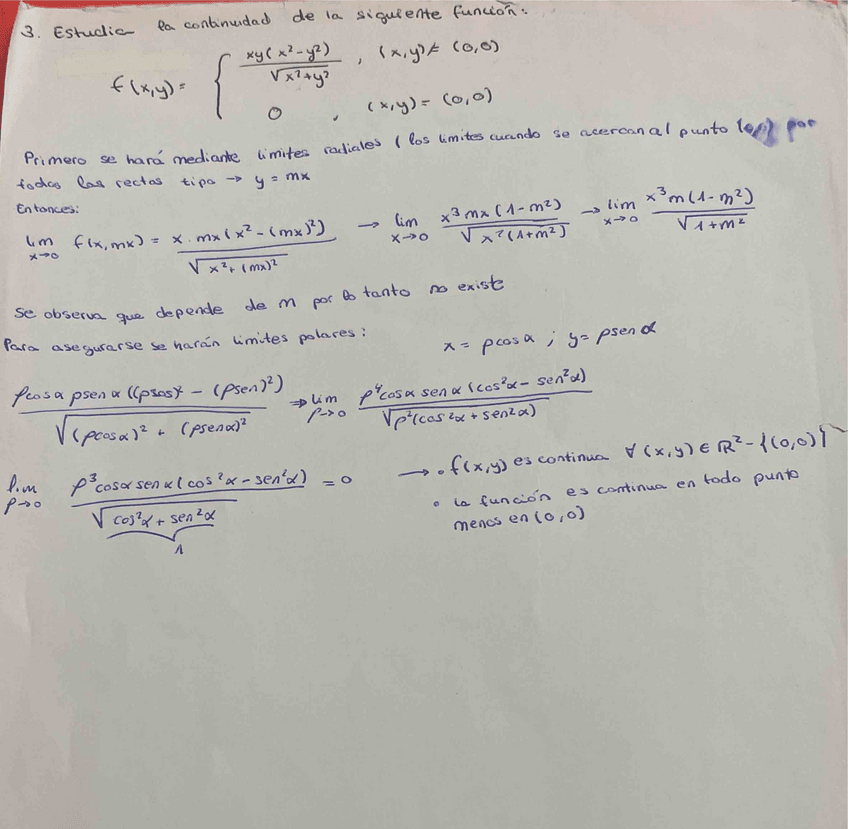 3. Estudia la continuidad de la siguiente función:
f(x,y) = { xy(x²-y²) / √x²+y² , (x,y) ≠ (0,0)
0 , (x,y) = (0,0)
Primero se hará mediante limites radiales (los limites cuando se acercan al punto (0,0) por
todas las rectas tipo → y = mx
Entonces:
lim x→0 f(x,mx) = x·mx(x²-(mx)²) / √x²+(mx)² → lim x→0 x³mx(1-m²) / √x²(1+m²) → lim x→0 x³m(1-m²) / √1+m²
Se observa que depende de m por lo tanto no existe
Para asegurarse se harán limites polares: x = ρcosα ; y = ρsenα
ρcosα ρsenα((ρcos)² - (ρsen)²) / √(ρcosα)² + (ρsenα)² ⇒ lim ρ→0 ρ⁴cosα senα(cos²α - sen²α) / √ρ²(cos²α + sen²α)
lim ρ→0 ρ³cosα senα(cos²α - sen²α) / √cos²α + sen²α = 0 → • f(x,y) es continua ∀(x,y) ∈ ℝ² - {(0,0)}
1
• la función es continua en todo punto
menos en (0,0)